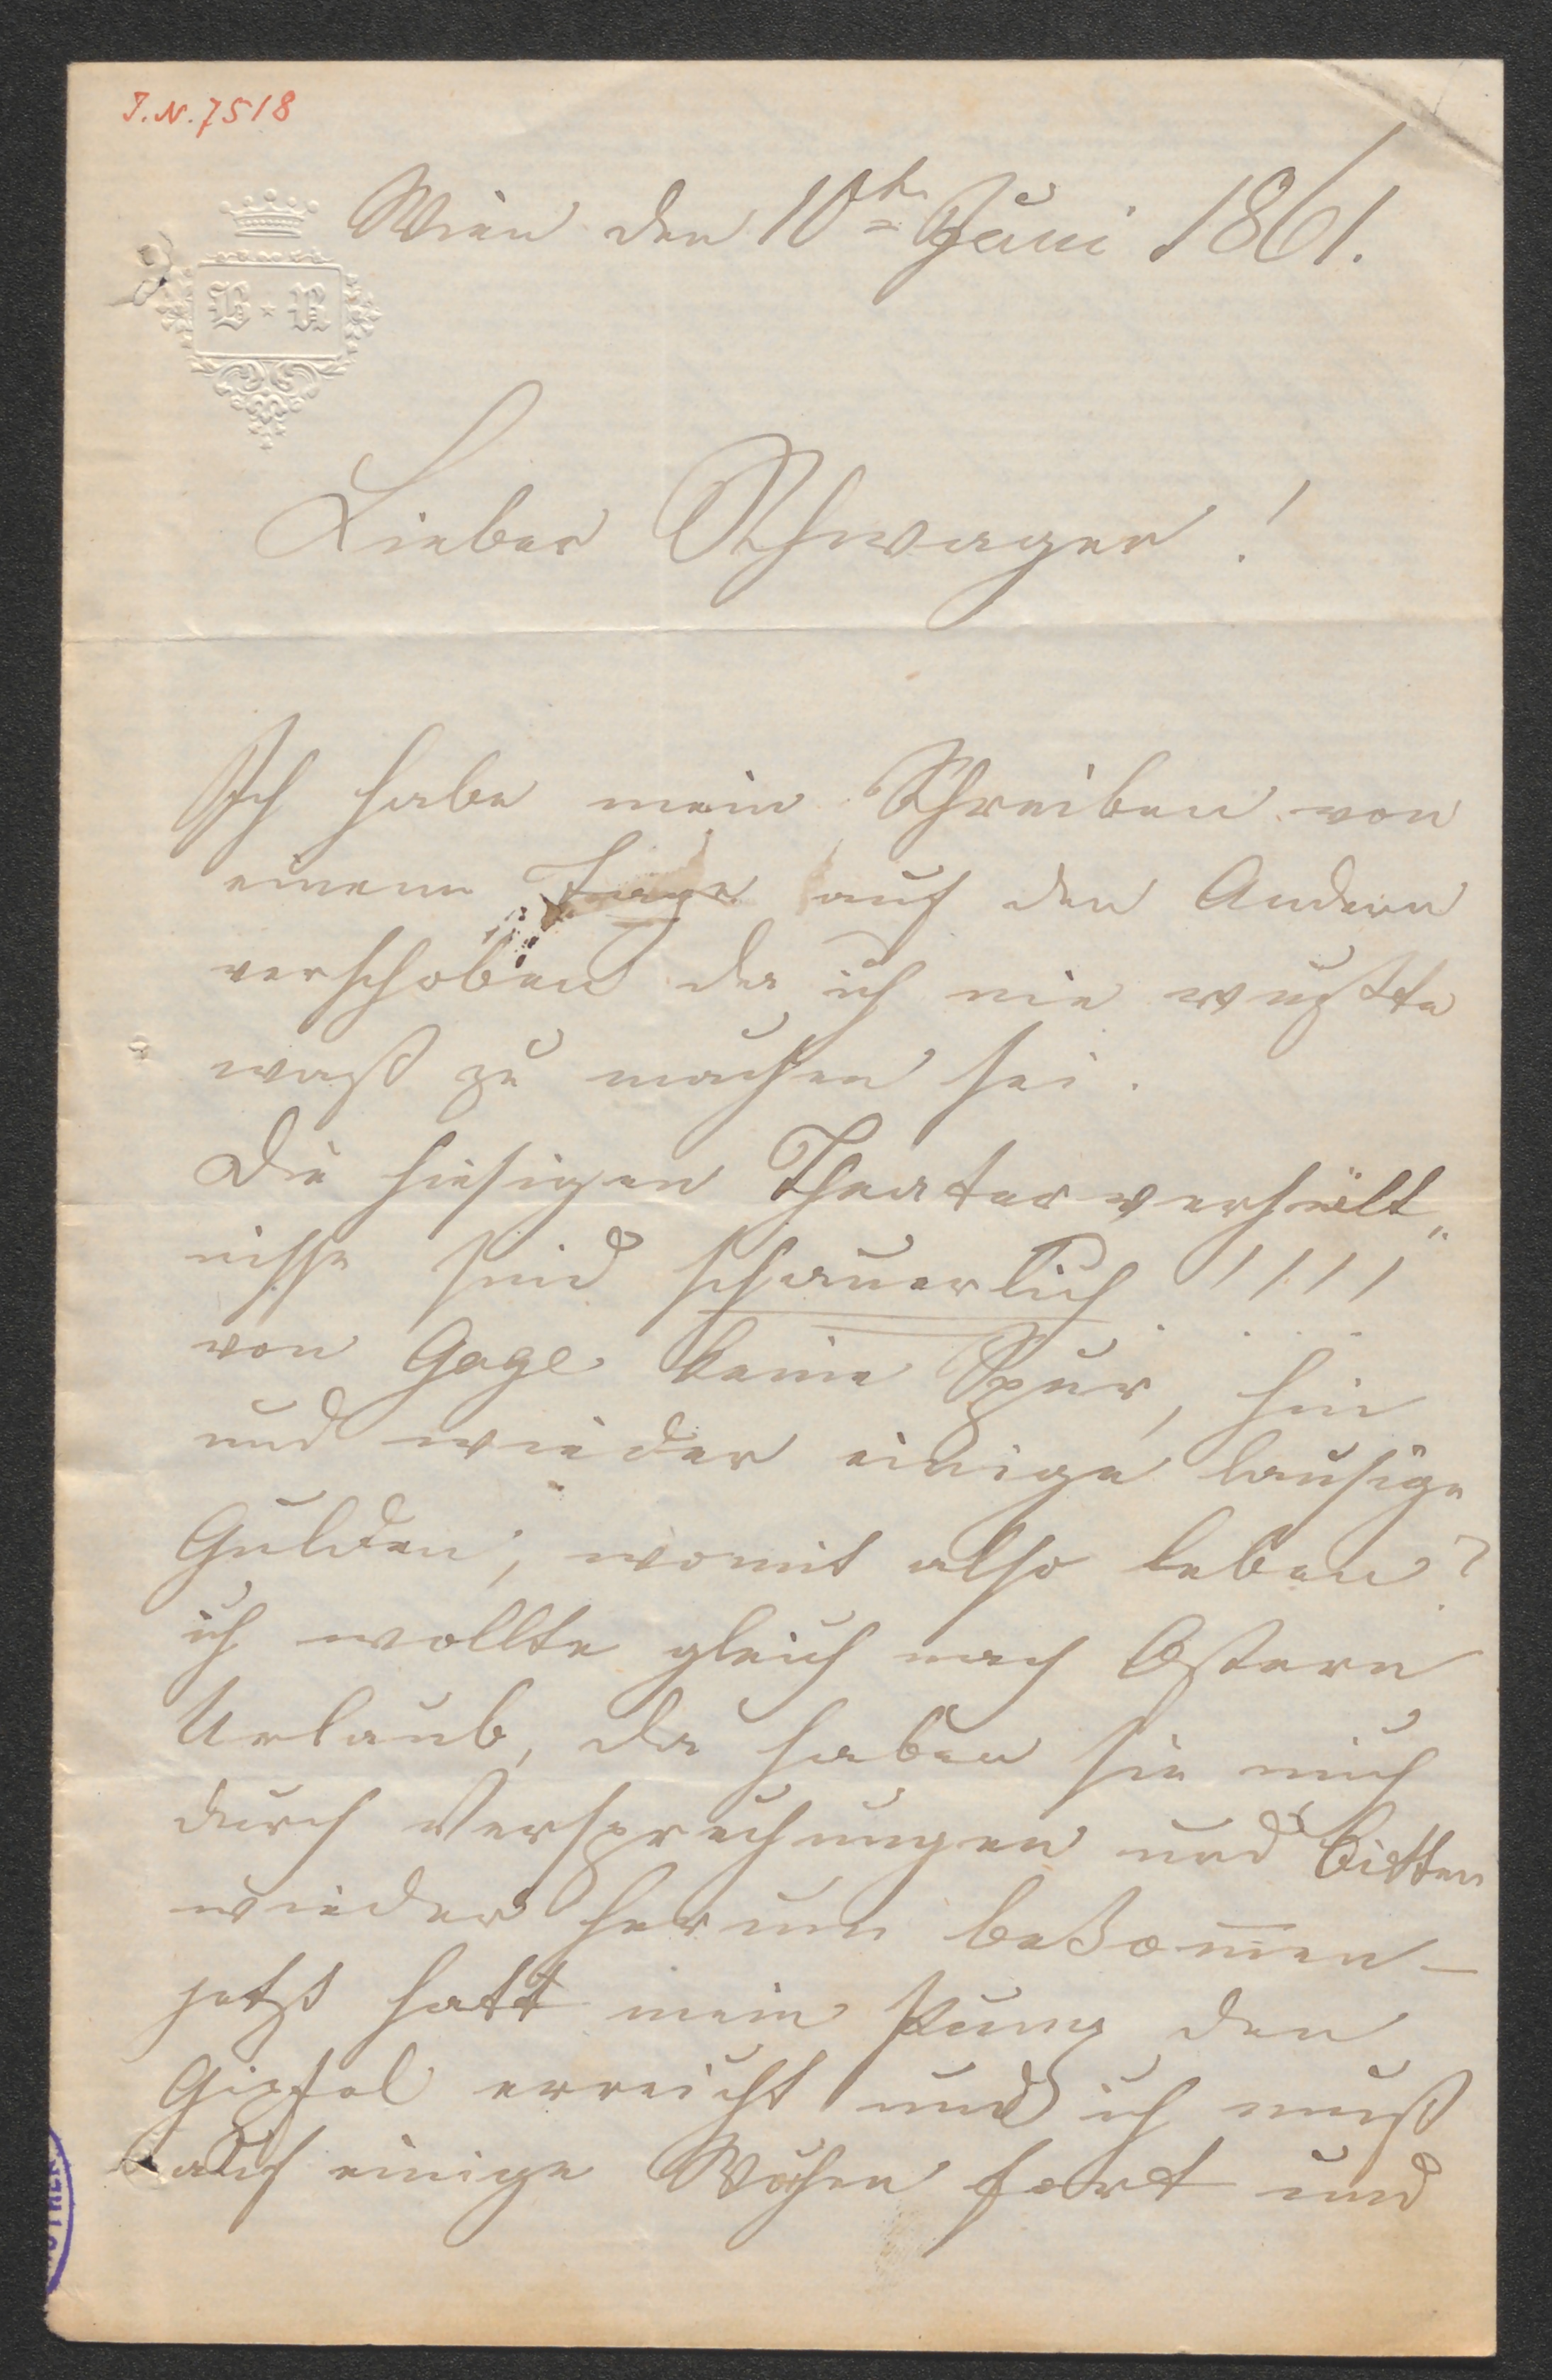 J.N. 7518
Wien den 10t Juni 1861.
B * R
Lieber Schwager!
Ich habe mein Schreiben von
einem Tage auf den Andern
verschoben da ich nie wußte
waß zu machen sei.
Die hiesigen Theaterverhält„
nisse sind schauerlich !!!!
von Gage keine Spur, hin
und wieder einige lausige
Gulden, womit also leben?
ich wollte gleich nach Ostern
Urlaub, da haben sie mich
durch Versprechungen und Bitten
wieder herum bekom̄en –
jetzt hatt mein Pump den
Gipfel erreicht und ich muß
auf einige Wochen fort und